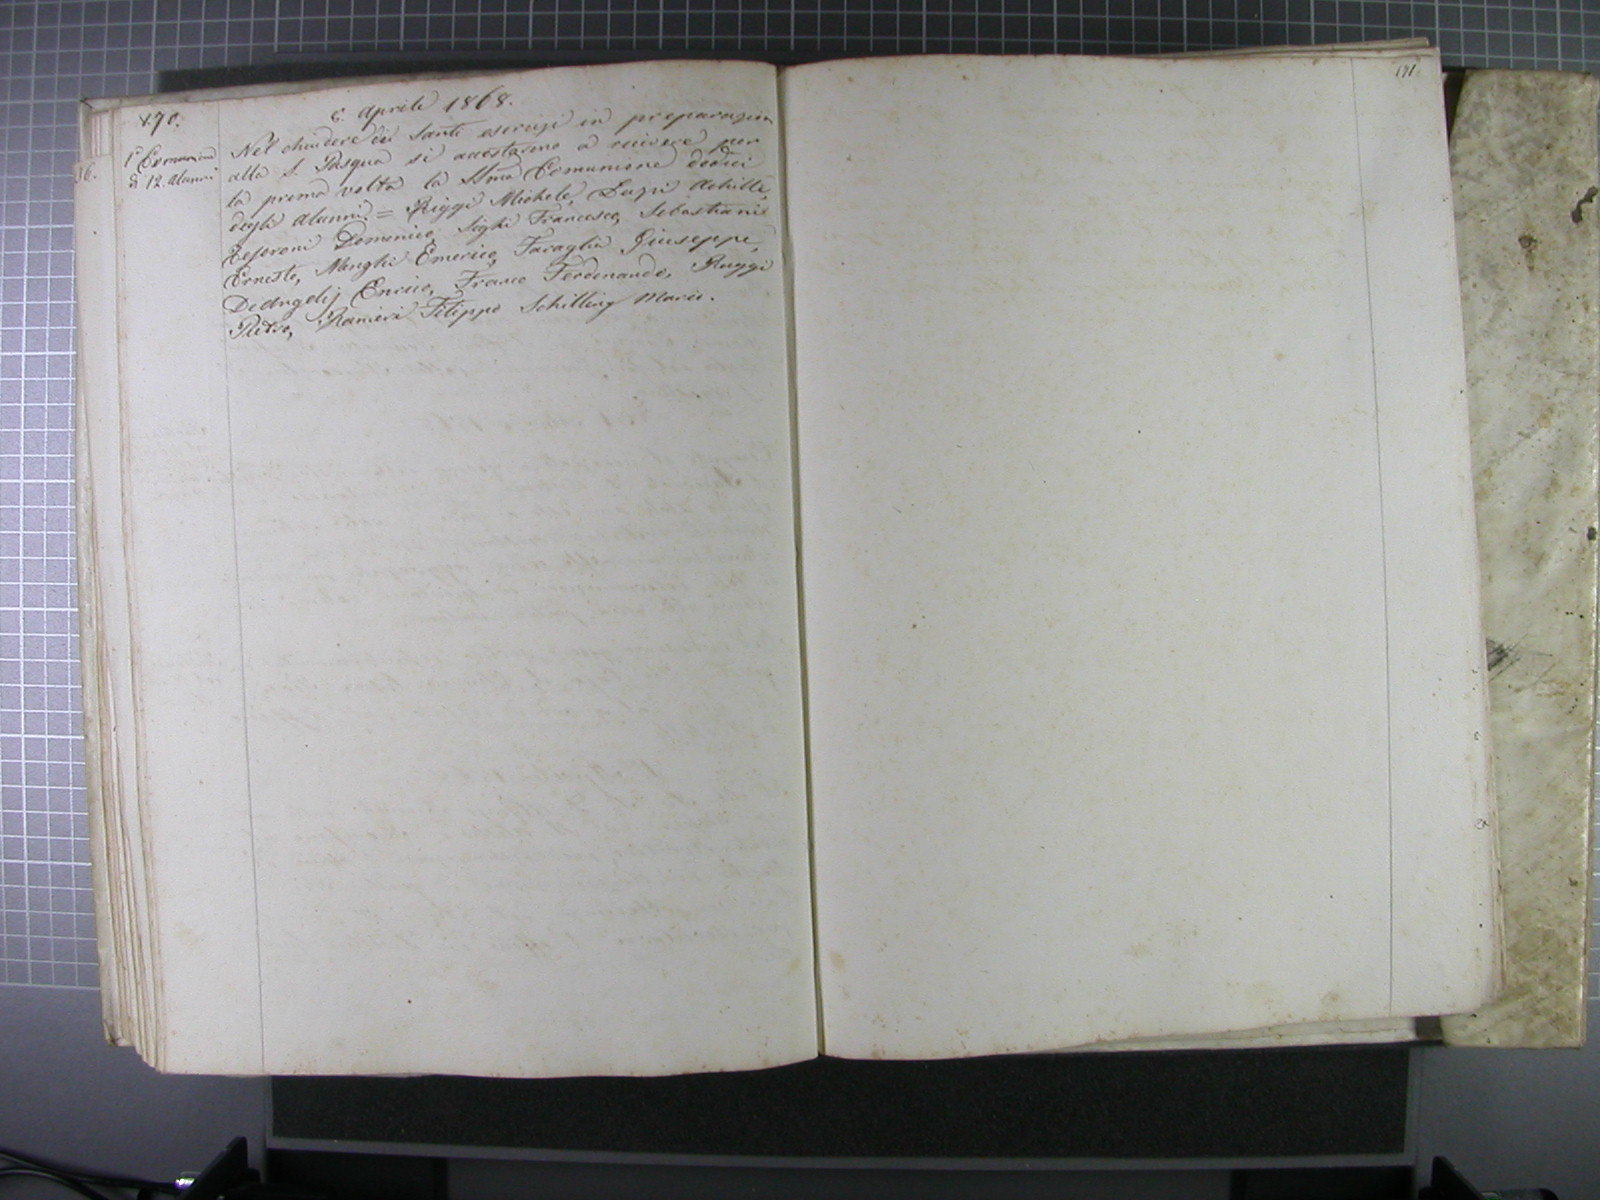 170.
6. Aprile 1868.
1ª Comunione
di 12. Alunni
Nel chiudere dei santi esercizi in preparazion
alla S. Pasqua si accostarono a ricevere per
la prima volta la SSma Comunione dodici
degli Alunni = Riggi Michele, Luzi Achille,
Domenico, Sighi Francesco, Sebastiani
Ernesto, Manghi Emerico, Tacaglia Giuseppe,
DeAngelis Enrico, Franco Ferdinando, Ruggi
Pietro, Ranieri Filippo Schilling Mario.
171.
16.